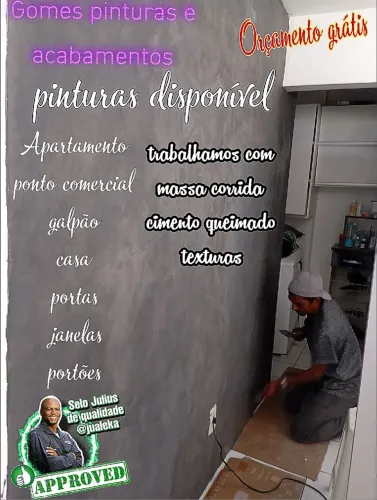 Gomes pinturas e
acabamentos
Orçamento grátis
pinturas disponível
Apartamento
ponto comercial
galpão
casa
portas
janelas
portões
trabalhamos com
massa corrida
cimento queimado
texturas
Selo Julius
de qualidade
@jualeka
APPROVED